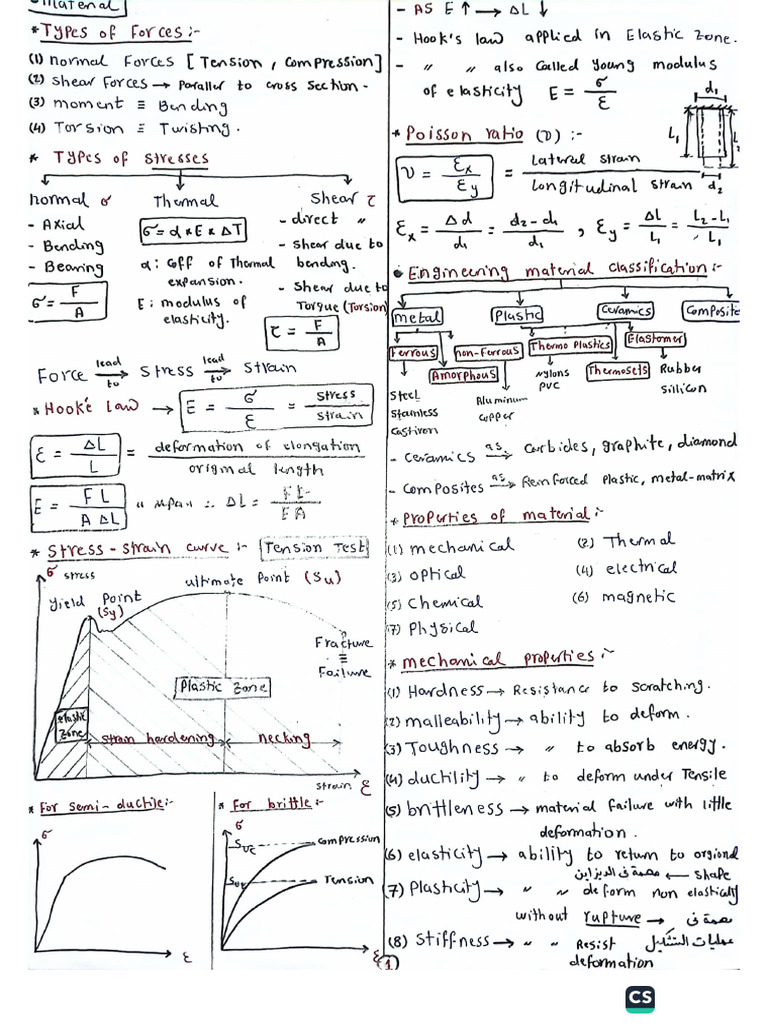 Material
* Types of Forces:-
(1) normal Forces [Tension, Compression]
(2) Shear Forces → Paraller to cross section-
(3) moment ≡ Bending
(4) Torsion ≡ Twisting.
* Types of stresses
normal σ Thermal Shear τ
- Axial
- Bending
- Bearing
σ = F/A
σ = α*E*ΔT
α: Coff of Thermal expansion.
E: modulus of elasticity.
- direct "
- Shear due to bending.
- Shear due to Torque (Torsion)
τ = F/A
Force lead to → Stress lead to → Strain
* Hooke Law → E = σ/ε = stress/strain
ε = ΔL/L = deformation of elongation / original length
E = FL/AΔL ∴ ΔL = FL/EA
* Stress-strain curve:- Tension Test
σ stress
ultimate Point (Su)
yield Point (Sy)
Fracture ≡ Failure
Plastic Zone
elastic Zone
strain hardening necking
strain ε
* For semi-ductile:-
σ
ε
* For brittle:-
σ
Suc compression
Sut Tension
ε
- AS E ↑ → ΔL ↓
- Hook's law applied in Elastic Zone.
- " " also called young modulus
of elasticity E = σ/ε
d1
L1
L2
d2
* Poisson ratio (ν) :-
ν = εx/εy = Lateral strain / Longitudinal strain
εx = Δd/d1 = d2-d1/d1 , εy = ΔL/L1 = L2-L1/L1
• Engineering material classification:-
metal Plastic Ceramics Composite
Ferrous non-Ferrous Thermo Plastics Elastomer
Amorphous Thermosets
Steel
Stainless
Castiron
Aluminum
copper
nylons
PVC
Rubber
Sillicon
- Ceramics as → Carbides, graphite, diamond
- Composites as → Reinforced Plastic, metal-matrix
* Properties of material:-
(1) mechanical (2) Thermal
(3) optical (4) electrical
(5) Chemical (6) magnetic
(7) Physical
* mechanical properties:-
(1) Hardness → Resistance to Scratching.
(2) malleability → ability to deform.
(3) Toughness → " to absorb energy.
(4) ductility → " to deform under Tensile
(5) brittleness → material failure with little
deformation.
(6) elasticity → ability to return to orgional
shape ← مهمة فى الديزاين
(7) Plasticity → " " deform non elastically
without rupture → مهمة فى
عمليات التشكيل
(8) Stiffness → " " Resist
deformation
1
CS